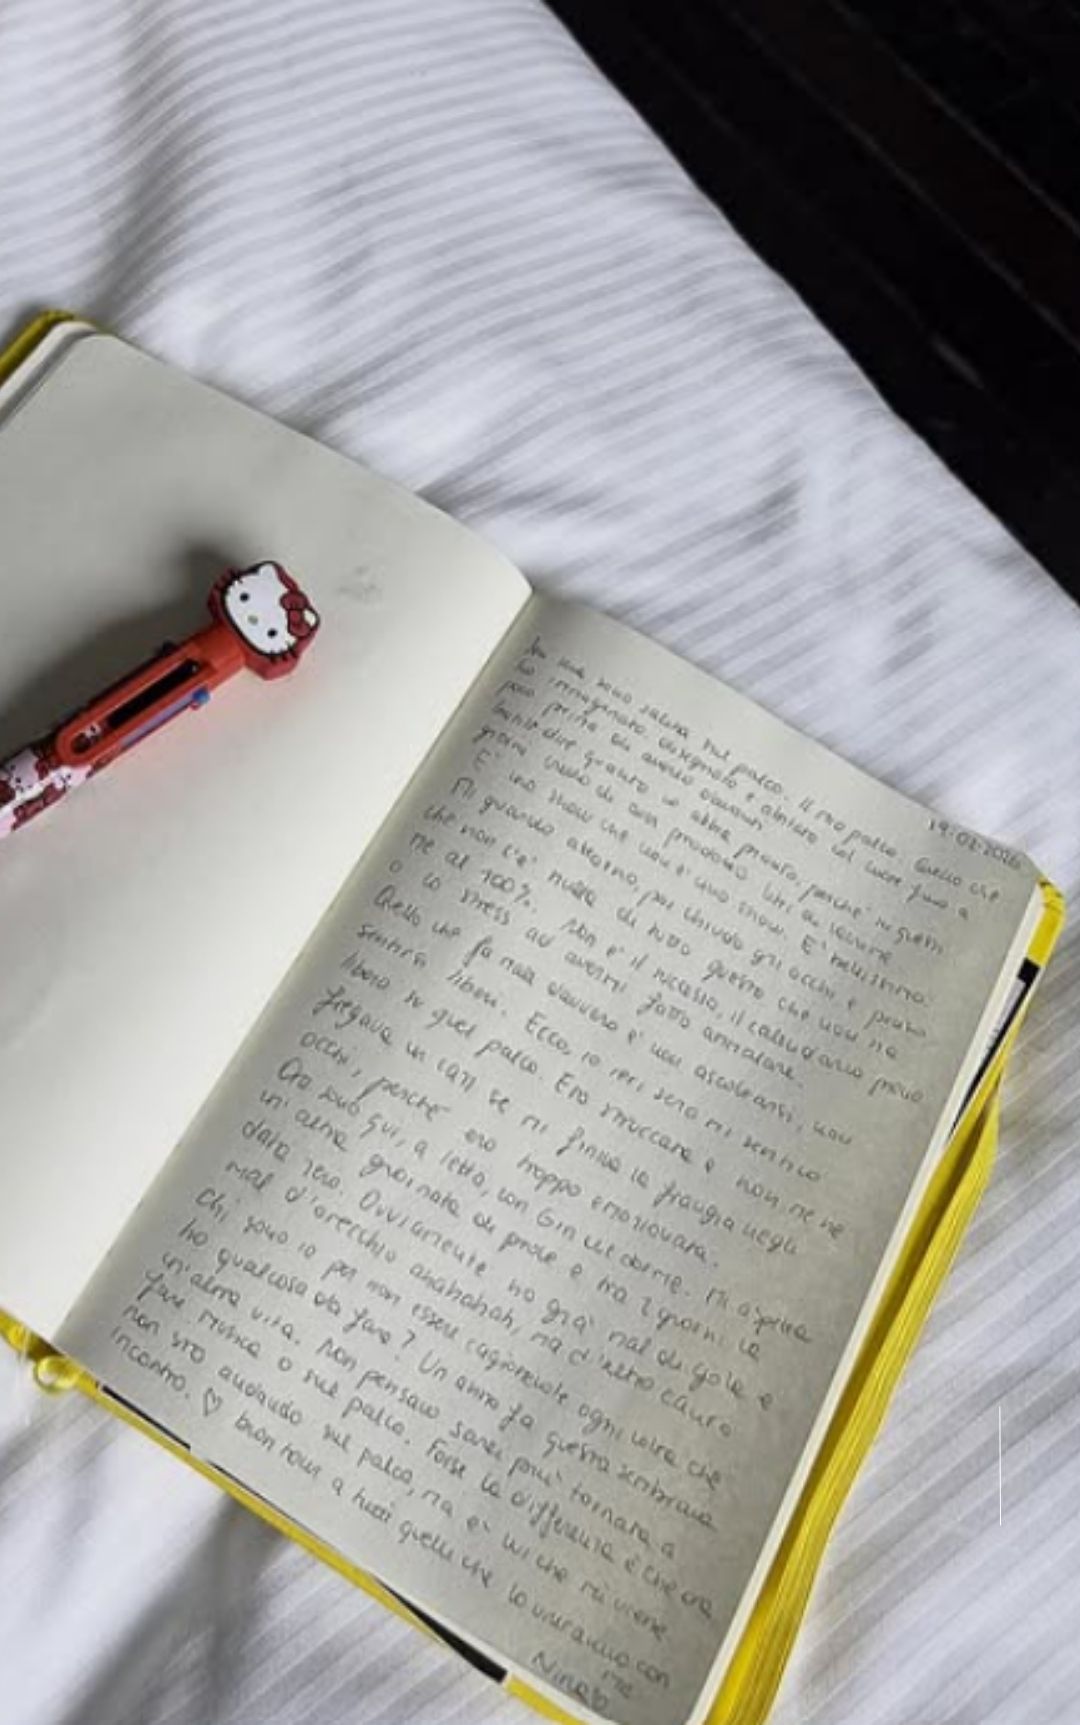 19.02.2026
sono salita sul palco. Il mio palco. Quello che
ho immaginato, disegnato e abitato col cuore fino a
poco prima di averlo davanti
quanto io abbia provato, perché in questi
giorni credo di aver prodotto litri di
E' uno show che non è uno show. E' bellissimo.
Mi guardo attorno, poi chiudo gli occhi e penso
che non c'è nulla di tutto questo che non sia
me al 100%. Non è il successo, il calendario pieno
o lo stress ad avermi fatto ammalare.
Quello che fa male davvero è non ascoltarsi, non
sentirsi liberi. Ecco, io ieri sera mi sentivo
libera su quel palco. Ero struccata e non me ne
fregava un cazz se mi finiva la frangia negli
occhi, perché ero troppo emozionata.
Ora sono qui, a letto, con Gin che dorme. Mi aspetta
un'altra giornata di prove e tra 2 giorni la
data zero. Ovviamente ho già mal di gola e
mal d'orecchio ahahahah, ma d'altro canto
chi sono io per non essere cagionevole ogni volta che
ho qualcosa da fare? Un anno fa questa sembrava
un'altra vita. Non pensavo sarei più tornata a
fare musica o sul palco. Forse la differenza è che ora
non sto andando sul palco, ma è lui che mi viene
incontro. ♡ buon tour a tutti quelli che lo vivranno con
me
Nina♡